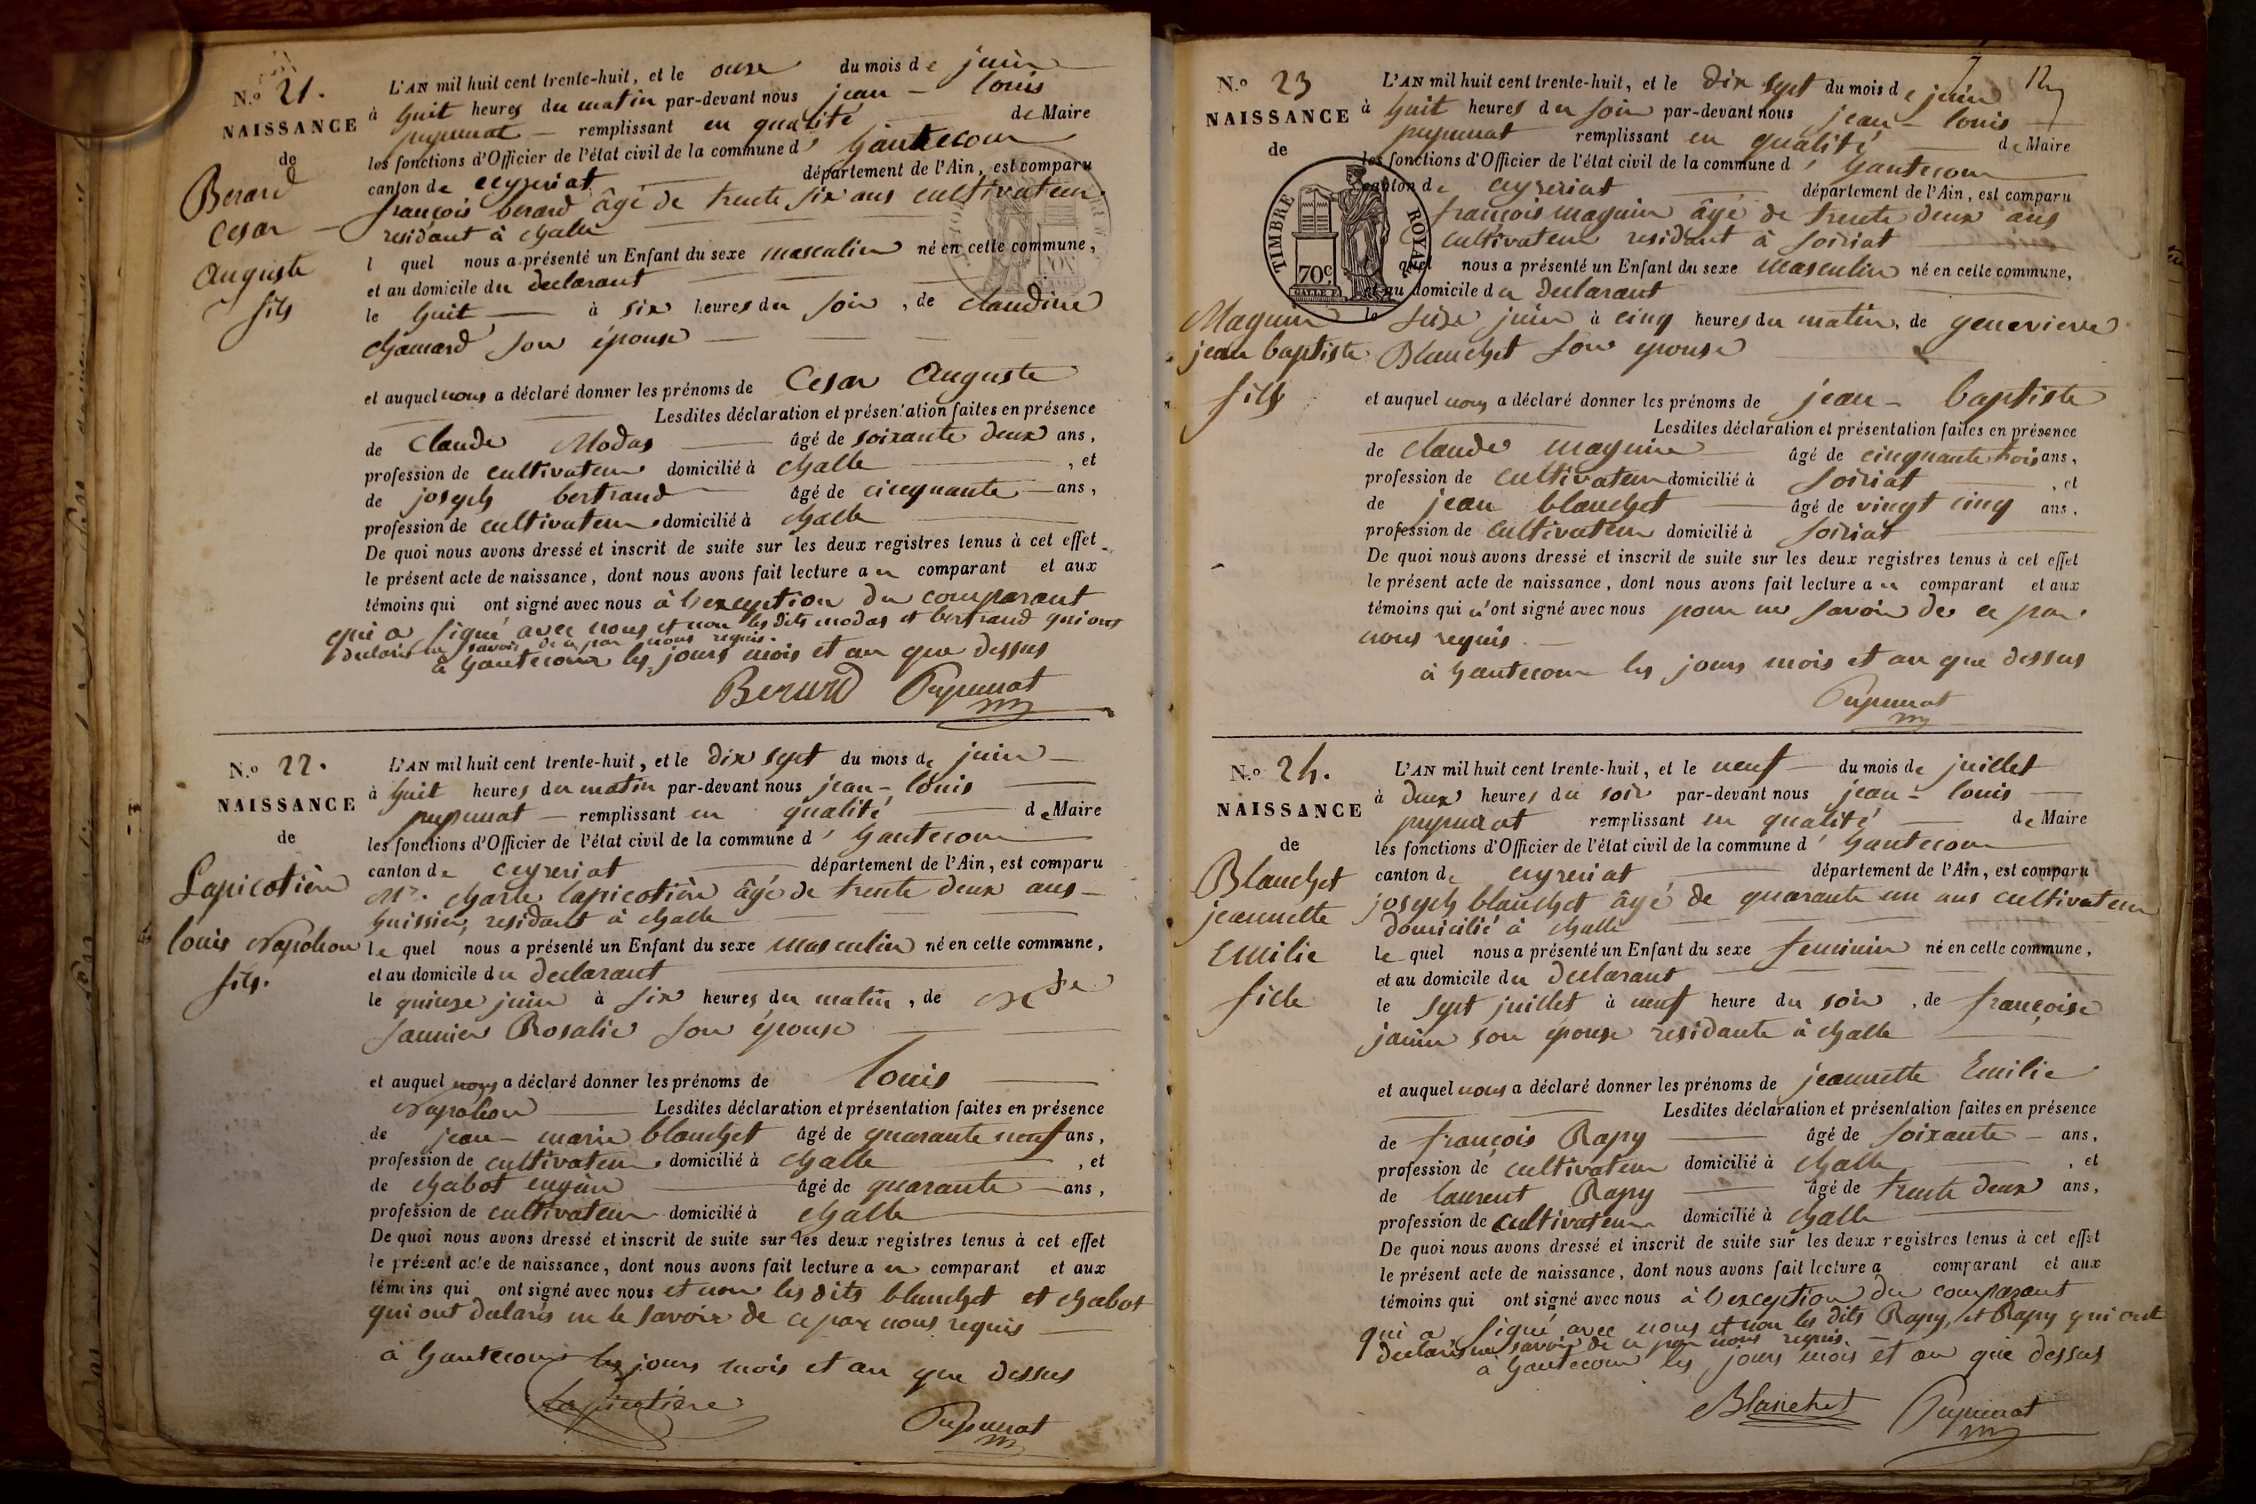 N.o 21.
NAISSANCE
de
Berard
Cesar
Auguste
fils
L'AN mil huit cent trente-huit, et le onze du mois de juin
à huit heures du matin par-devant nous jean - louis
pupunat remplissant en qualité de Maire
les fonctions d'Officier de l'état civil de la commune d' hautecour
canton de ceyzeriat département de l'Ain, est comparu
françois berard âgé de trente six ans cultivateur
residant à challe
l quel nous a présenté un Enfant du sexe masculin né en cette commune,
et au domicile du declarant
le huit à six heures du soir, de claudine
chanard son épouse
et auquel nous a déclaré donner les prénoms de Cesar Auguste
Lesdites déclaration et présentation faites en présence
de Claude Modas âgé de soixante deux ans,
profession de cultivateur domicilié à challe, et
de joseph bertrand âgé de cinquante ans,
profession de cultivateur domicilié à challe
De quoi nous avons dressé et inscrit de suite sur les deux registres tenus à cet effet
le présent acte de naissance, dont nous avons fait lecture au comparant et aux
témoins qui ont signé avec nous à l'exception du comparant
qui a signé avec nous et non les dits modas et bertrand qui ont
declarés ne savoir de ce par nous requis.
à hautecour les jours mois et an que dessus
Berard Pupunat
N.o 22.
NAISSANCE
de
Lapicotière
louis Napoleon
fils.
L'AN mil huit cent trente-huit, et le dix sept du mois de juin
à huit heures du matin par-devant nous jean - louis
pupunat remplissant en qualité de Maire
les fonctions d'Officier de l'état civil de la commune d' hautecour
canton de ceyzeriat département de l'Ain, est comparu
Mr. charle lapicotière âgé de trente deux ans
huissier, residant à challe
le quel nous a présenté un Enfant du sexe masculin né en cette commune,
et au domicile du declarant
le quinze juin à six heures du matin, de
Rosalie son épouse
et auquel nous a déclaré donner les prénoms de louis
Napoleon Lesdites déclaration et présentation faites en présence
de jean - marie blanchet âgé de quarante neuf ans,
profession de cultivateur domicilié à challe, et
de chabot eugène âgé de quarante ans,
profession de cultivateur domicilié à challe
De quoi nous avons dressé et inscrit de suite sur les deux registres tenus à cet effet
le présent acte de naissance, dont nous avons fait lecture au comparant et aux
témoins qui ont signé avec nous et non les dits blanchet et chabot
qui ont declarés ne le savoir de ce par nous requis
à hautecour les jours mois et an que dessus
Lapicotière
Pupunat
12
N.o 23
NAISSANCE
de
Maguin
jean baptiste
fils
TIMBRE ROYAL
70c
L'AN mil huit cent trente-huit, et le dix sept du mois de juin
à huit heures du soir par-devant nous jean - louis
pupunat remplissant en qualité de Maire
les fonctions d'Officier de l'état civil de la commune d' hautecour
canton de ceyzeriat département de l'Ain, est comparu
françois maguin âgé de trente deux ans
cultivateur residant à soiriat
quel nous a présenté un Enfant du sexe masculin né en cette commune,
et au domicile du declarant
le seize juin à cinq heures du matin, de genevieve
Blanchet son épouse
et auquel nous a déclaré donner les prénoms de jean - baptiste
Lesdites déclaration et présentation faites en présence
de claude maguin âgé de cinquante trois ans,
profession de cultivateur domicilié à soiriat, et
de jean blanchet âgé de vingt cinq ans,
profession de cultivateur domicilié à soiriat
De quoi nous avons dressé et inscrit de suite sur les deux registres tenus à cet effet
le présent acte de naissance, dont nous avons fait lecture au comparant et aux
témoins qui n'ont signé avec nous pour ne savoir de ce par
nous requis.
à hautecour les jours mois et an que dessus
Pupunat
N.o 24.
NAISSANCE
de
Blanchet
jeannette
Emilie
fille
L'AN mil huit cent trente-huit, et le neuf du mois de juillet
à deux heures du soir par-devant nous jean - louis
pupunat remplissant en qualité de Maire
les fonctions d'Officier de l'état civil de la commune d' hautecour
canton de ceyzeriat département de l'Ain, est comparu
joseph blanchet âgé de quarante un ans cultivateur
domicilié à challe
le quel nous a présenté un Enfant du sexe feminin né en cette commune,
et au domicile du declarant
le sept juillet à neuf heure du soir, de françoise
janin son épouse residante à challe
et auquel nous a déclaré donner les prénoms de jeannette Emilie
Lesdites déclaration et présentation faites en présence
de françois Rapy âgé de soixante ans,
profession de cultivateur domicilié à challe, et
de laurent Rapy âgé de trente deux ans,
profession de cultivateur domicilié à challe
De quoi nous avons dressé et inscrit de suite sur les deux registres tenus à cet effet
le présent acte de naissance, dont nous avons fait lecture a comparant et aux
témoins qui ont signé avec nous à l'exception du comparant
qui a signé avec nous et non les dits Rapy, et Rapy qui ont
declarés ne savoir de ce par nous requis.
à hautecour les jours mois et an que dessus
Blanchet Pupunat